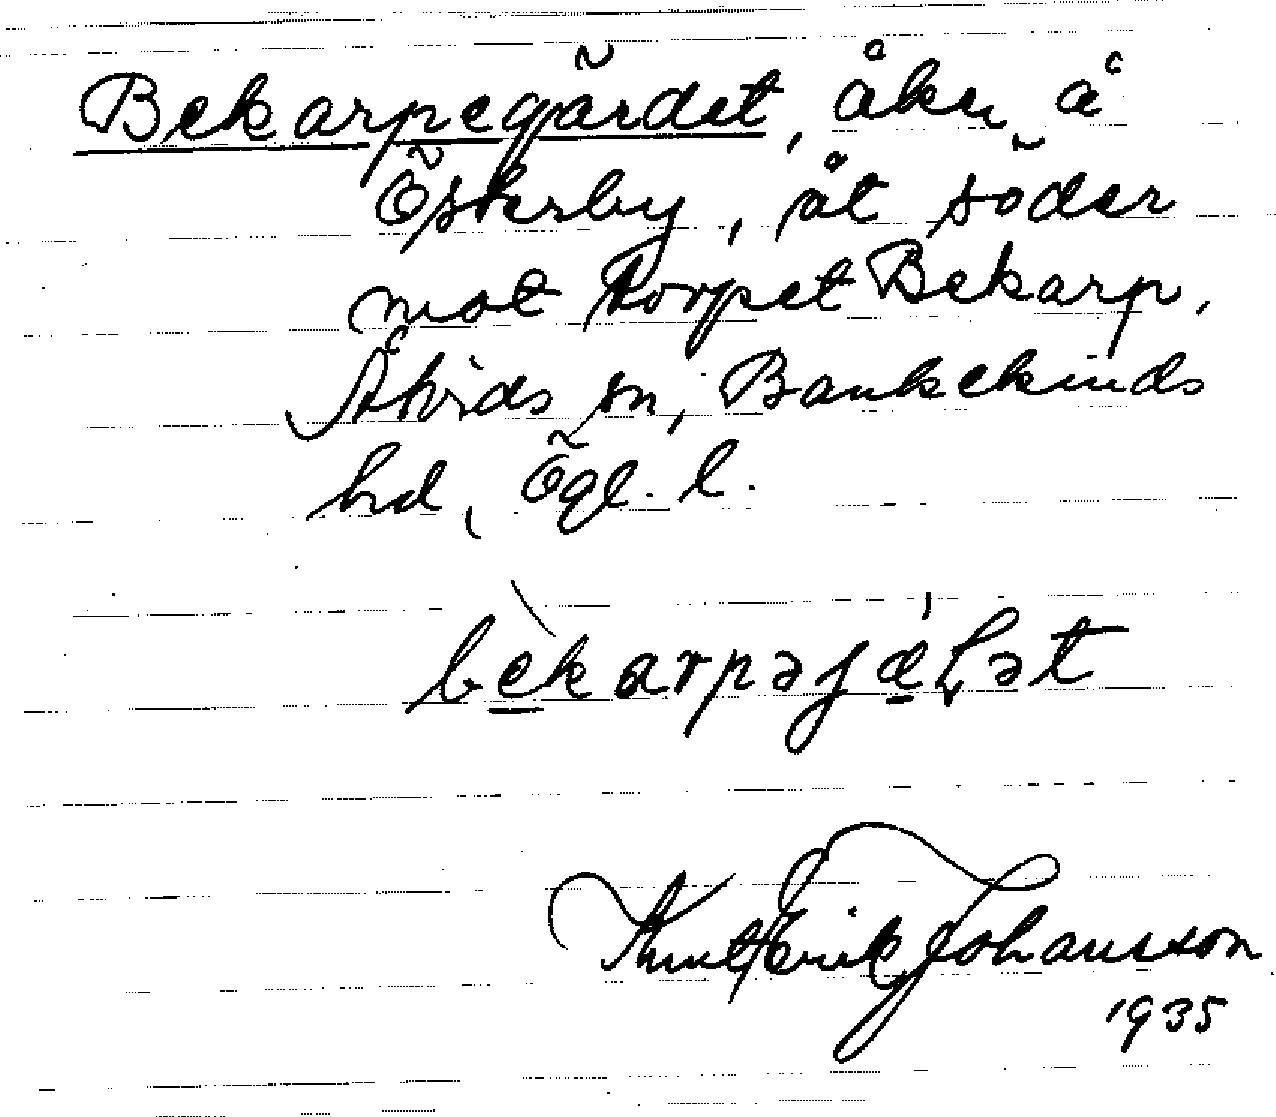 Bekarpegärdet, åker å
Österby, åt söder
mot torpet Bekarp,
Åtvids sn, Bankekinds
hd, Ögl. l.
bèkarpəjæ̱Lət
Knut Erik Johansson
1935